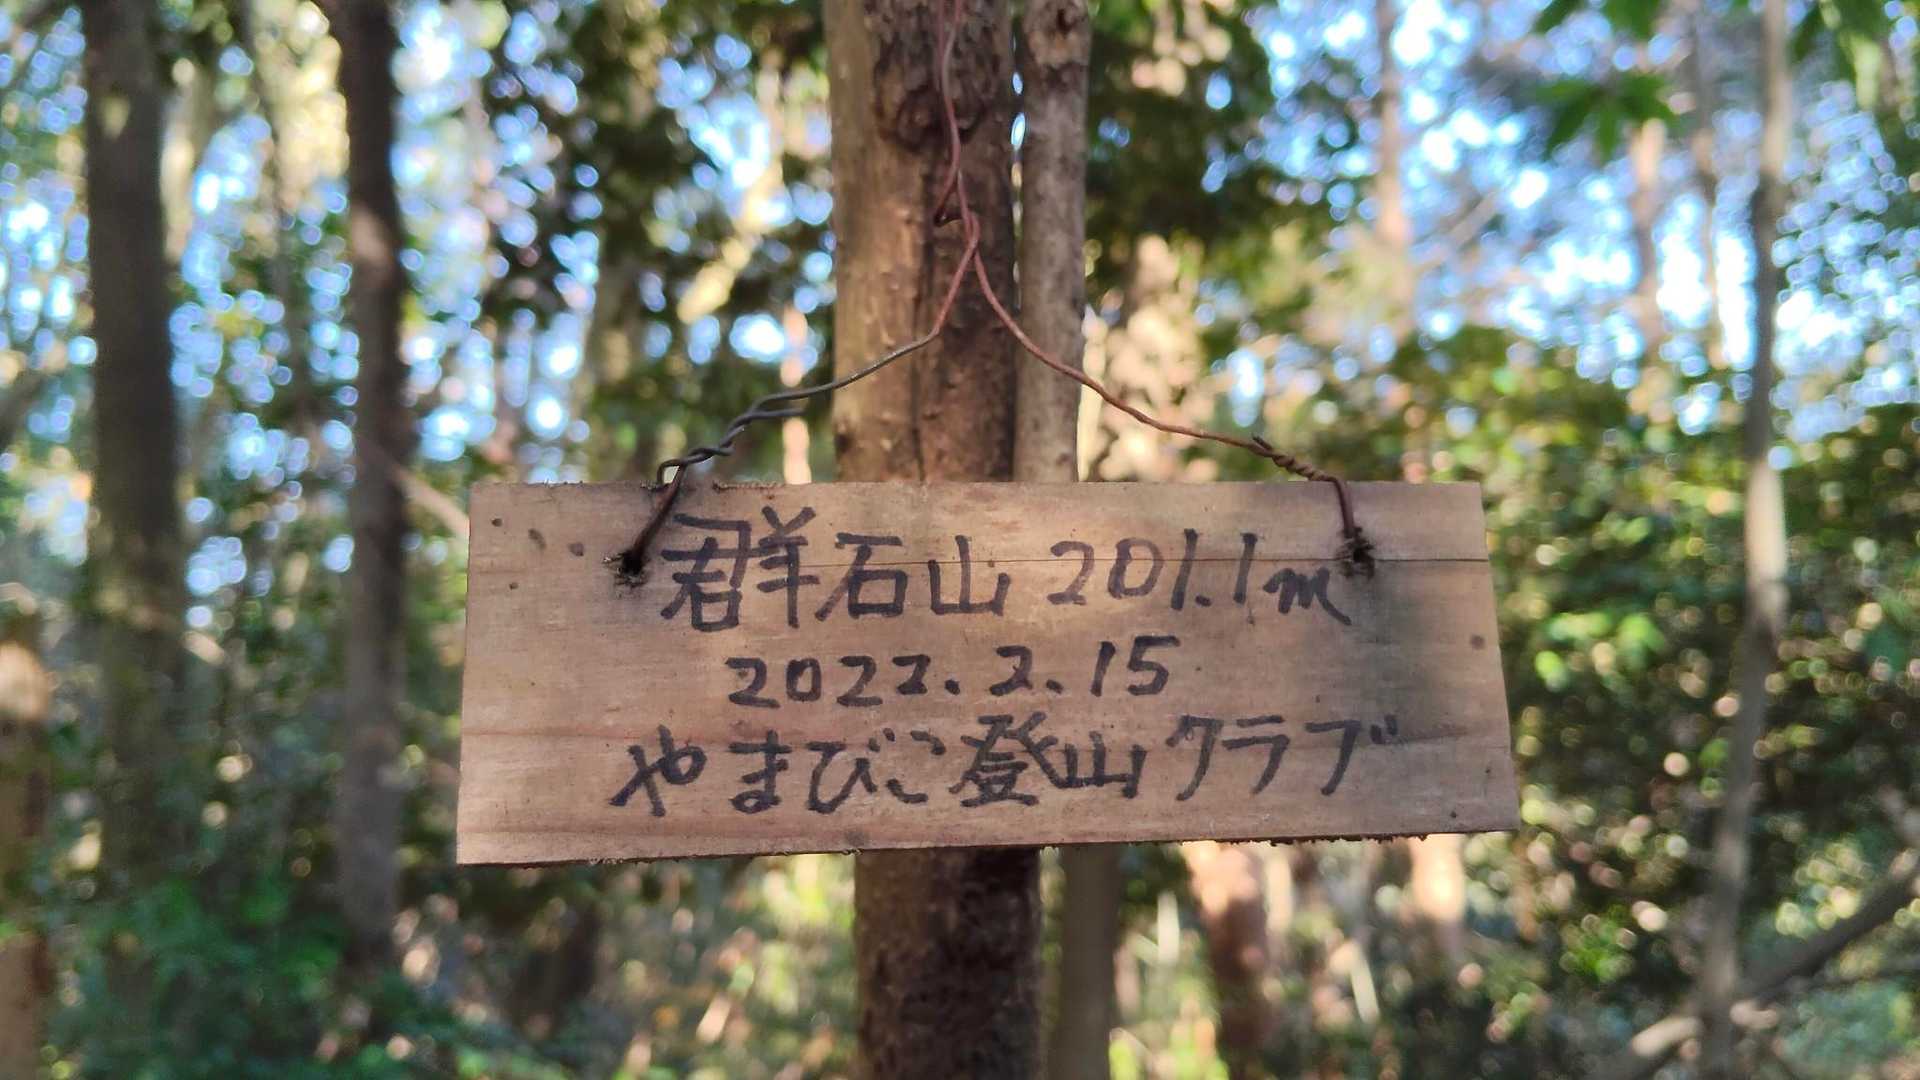 群石山 201.1m
2022.2.15
やまびこ登山クラブ